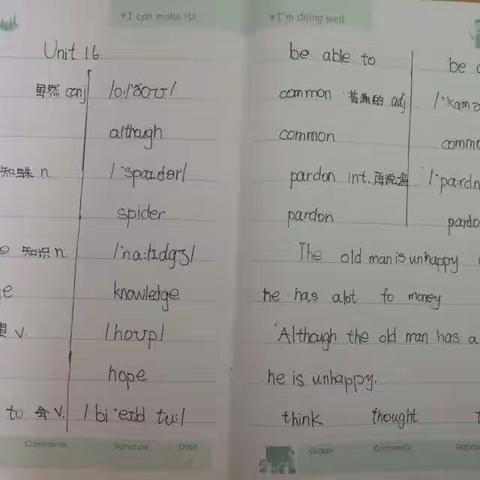 I can make it!
Unit 16
虽然 conj /ɔ:l'ðoʊ/
although
n. /'spaɪdər/
spider
知识 n. /'na:lɪdgʒ/
knowletge
v. /hoʊp/
hope
to 会 v. /bi 'eɪbl tu:/
Comments Signature Date
I'm doing well
be able to be a
common 普通的 adj /'kamə
common commo
pardon int. 再说遍 /'pardn
pardon pardo
The old man is unhappy
he has alot fo money
'Although the old man has a
he is unhappy.
think thought t
Grade Comments Signa